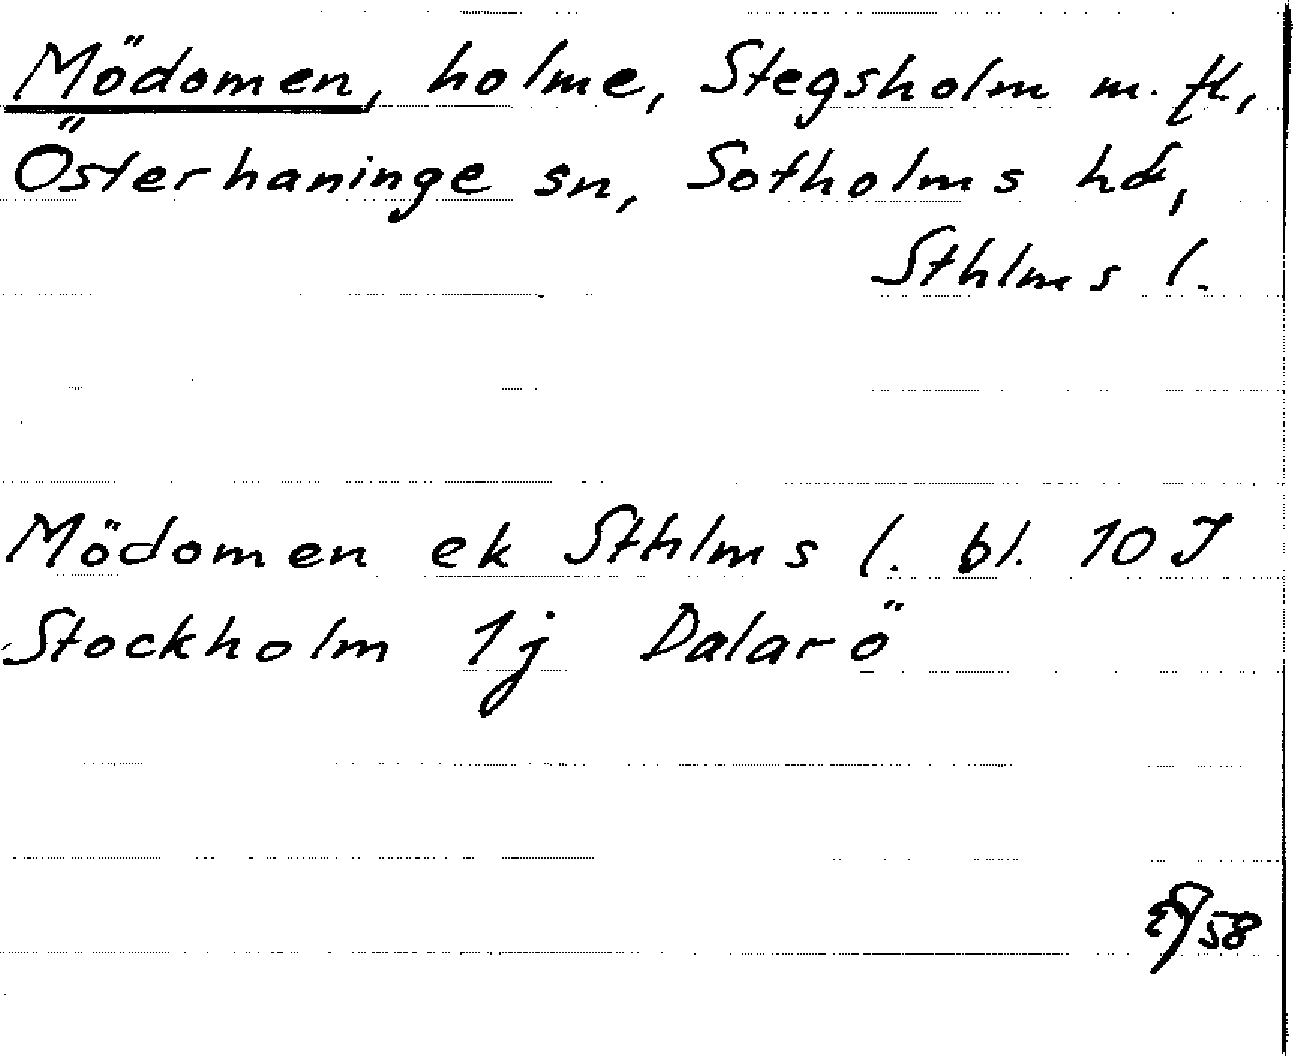 Mödomen, holme, Stegsholm m. fl.,
Österhaninge sn, Sotholms hd,
Sthlms l.
Mödomen ek Sthlms l. bl. 10 J
Stockholm 1j Dalarö
58